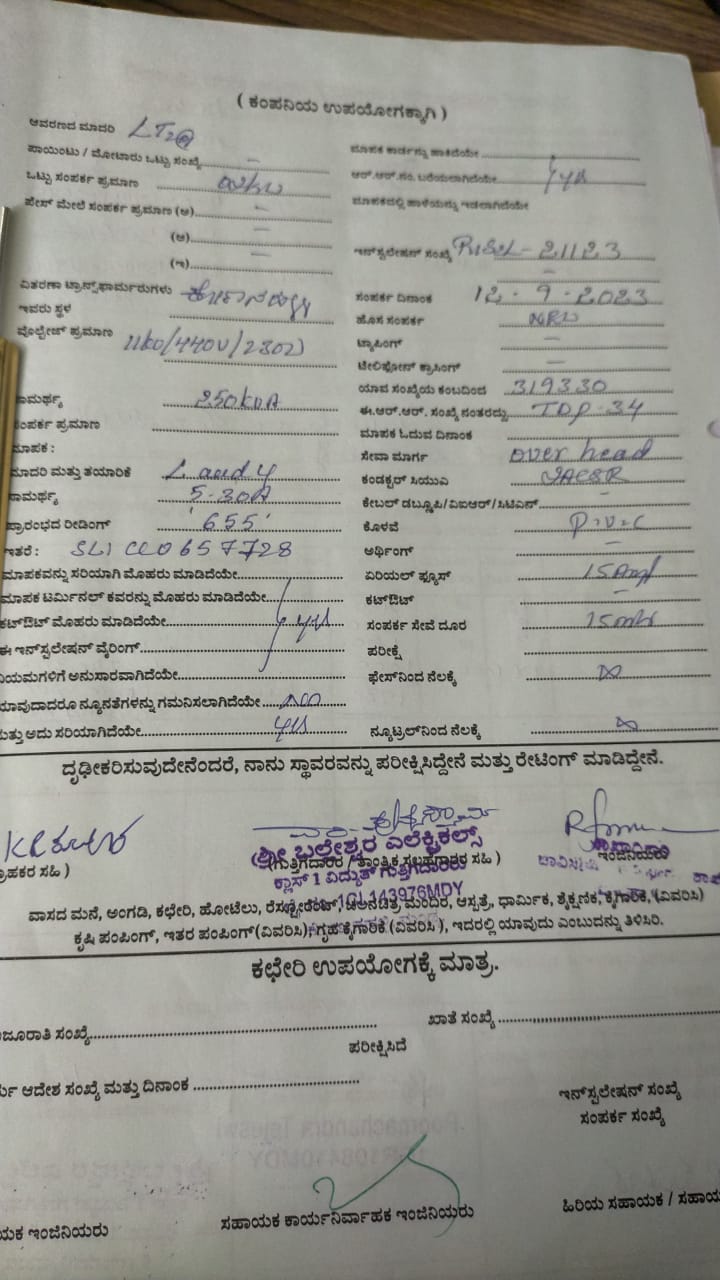 ( ಕಂಪನಿಯ ಉಪಯೋಗಕ್ಕಾಗಿ )
ಆವರಣದ ಮಾದರಿ LT2@
ಪಾಯಿಂಟು / ಮೋಟಾರು ಒಟ್ಟು ಸಂಖ್ಯೆ –
ಒಟ್ಟು ಸಂಪರ್ಕ ಪ್ರಮಾಣ
ಪೇಸ್ ಮೇಲೆ ಸಂಪರ್ಕ ಪ್ರಮಾಣ (ಅ) –
(ಆ) –
(ಇ) –
ವಿತರಣಾ ಟ್ರಾನ್ಸ್‌ಫಾರ್ಮರುಗಳು
ಇವರು ಸ್ಥಳ
ವೊಲ್ಟೇಜ್ ಪ್ರಮಾಣ
ಾಮರ್ಥ್ಯ 250KVA
ಸಂಪರ್ಕ ಪ್ರಮಾಣ
ಮಾಪಕ :
ಮಾದರಿ ಮತ್ತು ತಯಾರಿಕೆ L and Y
ಾಮರ್ಥ್ಯ 5-30A
ಪ್ರಾರಂಭದ ರೀಡಿಂಗ್ '655'
ಇತರೆ :
ಮಾಪಕವನ್ನು ಸರಿಯಾಗಿ ಮೊಹರು ಮಾಡಿದೆಯೇ
ಮಾಪಕ ಟರ್ಮಿನಲ್ ಕವರನ್ನು ಮೊಹರು ಮಾಡಿದೆಯೇ
ಕಟ್‌ಔಟ್ ಮೊಹರು ಮಾಡಿದೆಯೇ yes
ಈ ಇನ್‌ಸ್ಟಲೇಷನ್ ವೈರಿಂಗ್
ನಿಯಮಗಳಿಗೆ ಅನುಸಾರವಾಗಿದೆಯೇ
ಯಾವುದಾದರೂ ನ್ಯೂನತೆಗಳನ್ನು ಗಮನಿಸಲಾಗಿದೆಯೇ NO
ಮತ್ತು ಅದು ಸರಿಯಾಗಿದೆಯೇ yes
ಮಾಪಕ ಕಾರ್ಡನ್ನು ಹಾಕಿದೆಯೇ
ಆರ್.ಆರ್.ನಂ. ಬರೆಯಲಾಗಿದೆಯೇ yes
ಮಾಪಕದಲ್ಲಿ ಹಾಳೆಯನ್ನು ಇಡಲಾಗಿದೆಯೇ
ಇನ್‌ಸ್ಟಲೇಷನ್ ಸಂಖ್ಯೆ
–
ಸಂಪರ್ಕ ದಿನಾಂಕ 12-9-2023
ಹೊಸ ಸಂಪರ್ಕ
ಟ್ಯಾಪಿಂಗ್ –
ಟೆಲಿಫೋನ್ ಕ್ರಾಸಿಂಗ್ –
ಯಾವ ಸಂಖ್ಯೆಯ ಕಂಬದಿಂದ 319330
ಈ.ಆರ್.ಆರ್. ಸಂಖ್ಯೆ ನಂತರದ್ದು TDP-34
ಮಾಪಕ ಓದುವ ದಿನಾಂಕ
ಸೇವಾ ಮಾರ್ಗ over head
ಕಂಡಕ್ಟರ್ ಸಿಯುಎ
ಕೇಬಲ್ ಡಬ್ಲೂಪಿ/ವಿಐಆರ್/ಸಿಟಿಎಸ್ –
ಕೊಳವೆ P.V.C
ಅರ್ಥಿಂಗ್ –
ಏರಿಯಲ್ ಫ್ಯೂಸ್ 15Amp
ಕಟ್‌ಔಟ್ –
ಸಂಪರ್ಕ ಸೇವೆ ದೂರ
ಪರೀಕ್ಷೆ
ಫೇಸ್‌ನಿಂದ ನೆಲಕ್ಕೆ ∞
ನ್ಯೂಟ್ರಲ್‌ನಿಂದ ನೆಲಕ್ಕೆ ∞
ದೃಢೀಕರಿಸುವುದೇನೆಂದರೆ, ನಾನು ಸ್ಥಾವರವನ್ನು ಪರೀಕ್ಷಿಸಿದ್ದೇನೆ ಮತ್ತು ರೇಟಿಂಗ್ ಮಾಡಿದ್ದೇನೆ.
ಶ್ರೀ ಬಲೇಶ್ವರ ಎಲೆಕ್ಟ್ರಿಕಲ್ಸ್
ಗ್ರಾಹಕರ ಸಹಿ ) (ಗುತ್ತಿಗೆದಾರರ / ತಾಂತ್ರಿಕ ಸಲಹಗಾರರ ಸಹಿ ) ಇಂಜಿನಿಯರು
ಕ್ಲಾಸ್ 1 ವಿದ್ಯುತ್ ಗುತ್ತಿಗೆದಾರರು
ವಾಸದ ಮನೆ, ಅಂಗಡಿ, ಕಛೇರಿ, ಹೋಟೆಲು, ರೆಸ್ಟೋರೆಂಟ್, ಚಲನಚಿತ್ರ ಮಂದಿರ, ಆಸ್ಪತ್ರೆ, ಧಾರ್ಮಿಕ, ಶೈಕ್ಷಣಿಕ, ಕೈಗಾರಿಕೆ, (ವಿವರಿಸಿ)
ಕೃಷಿ ಪಂಪಿಂಗ್, ಇತರ ಪಂಪಿಂಗ್(ವಿವರಿಸಿ), ಗೃಹ ಕೈಗಾರಿಕೆ (ವಿವರಿಸಿ ), ಇದರಲ್ಲಿ ಯಾವುದು ಎಂಬುದನ್ನು ತಿಳಿಸಿರಿ.
ಕಛೇರಿ ಉಪಯೋಗಕ್ಕೆ ಮಾತ್ರ.
ಜೂರಾತಿ ಸಂಖ್ಯೆ ಖಾತೆ ಸಂಖ್ಯೆ
ಪರೀಕ್ಷಿಸಿದೆ
ಆದೇಶ ಸಂಖ್ಯೆ ಮತ್ತು ದಿನಾಂಕ
ಇನ್‌ಸ್ಟಲೇಷನ್ ಸಂಖ್ಯೆ
ಸಂಪರ್ಕ ಸಂಖ್ಯೆ
ಯಕ ಇಂಜಿನಿಯರು ಸಹಾಯಕ ಕಾರ್ಯನಿರ್ವಾಹಕ ಇಂಜಿನಿಯರು ಹಿರಿಯ ಸಹಾಯಕ / ಸಹಾಯ